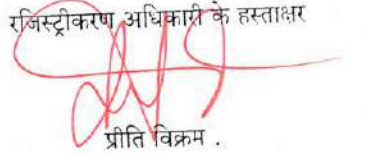 रजिस्ट्रीकरण अधिकारी के हस्ताक्षर
प्रीति विक्रम .